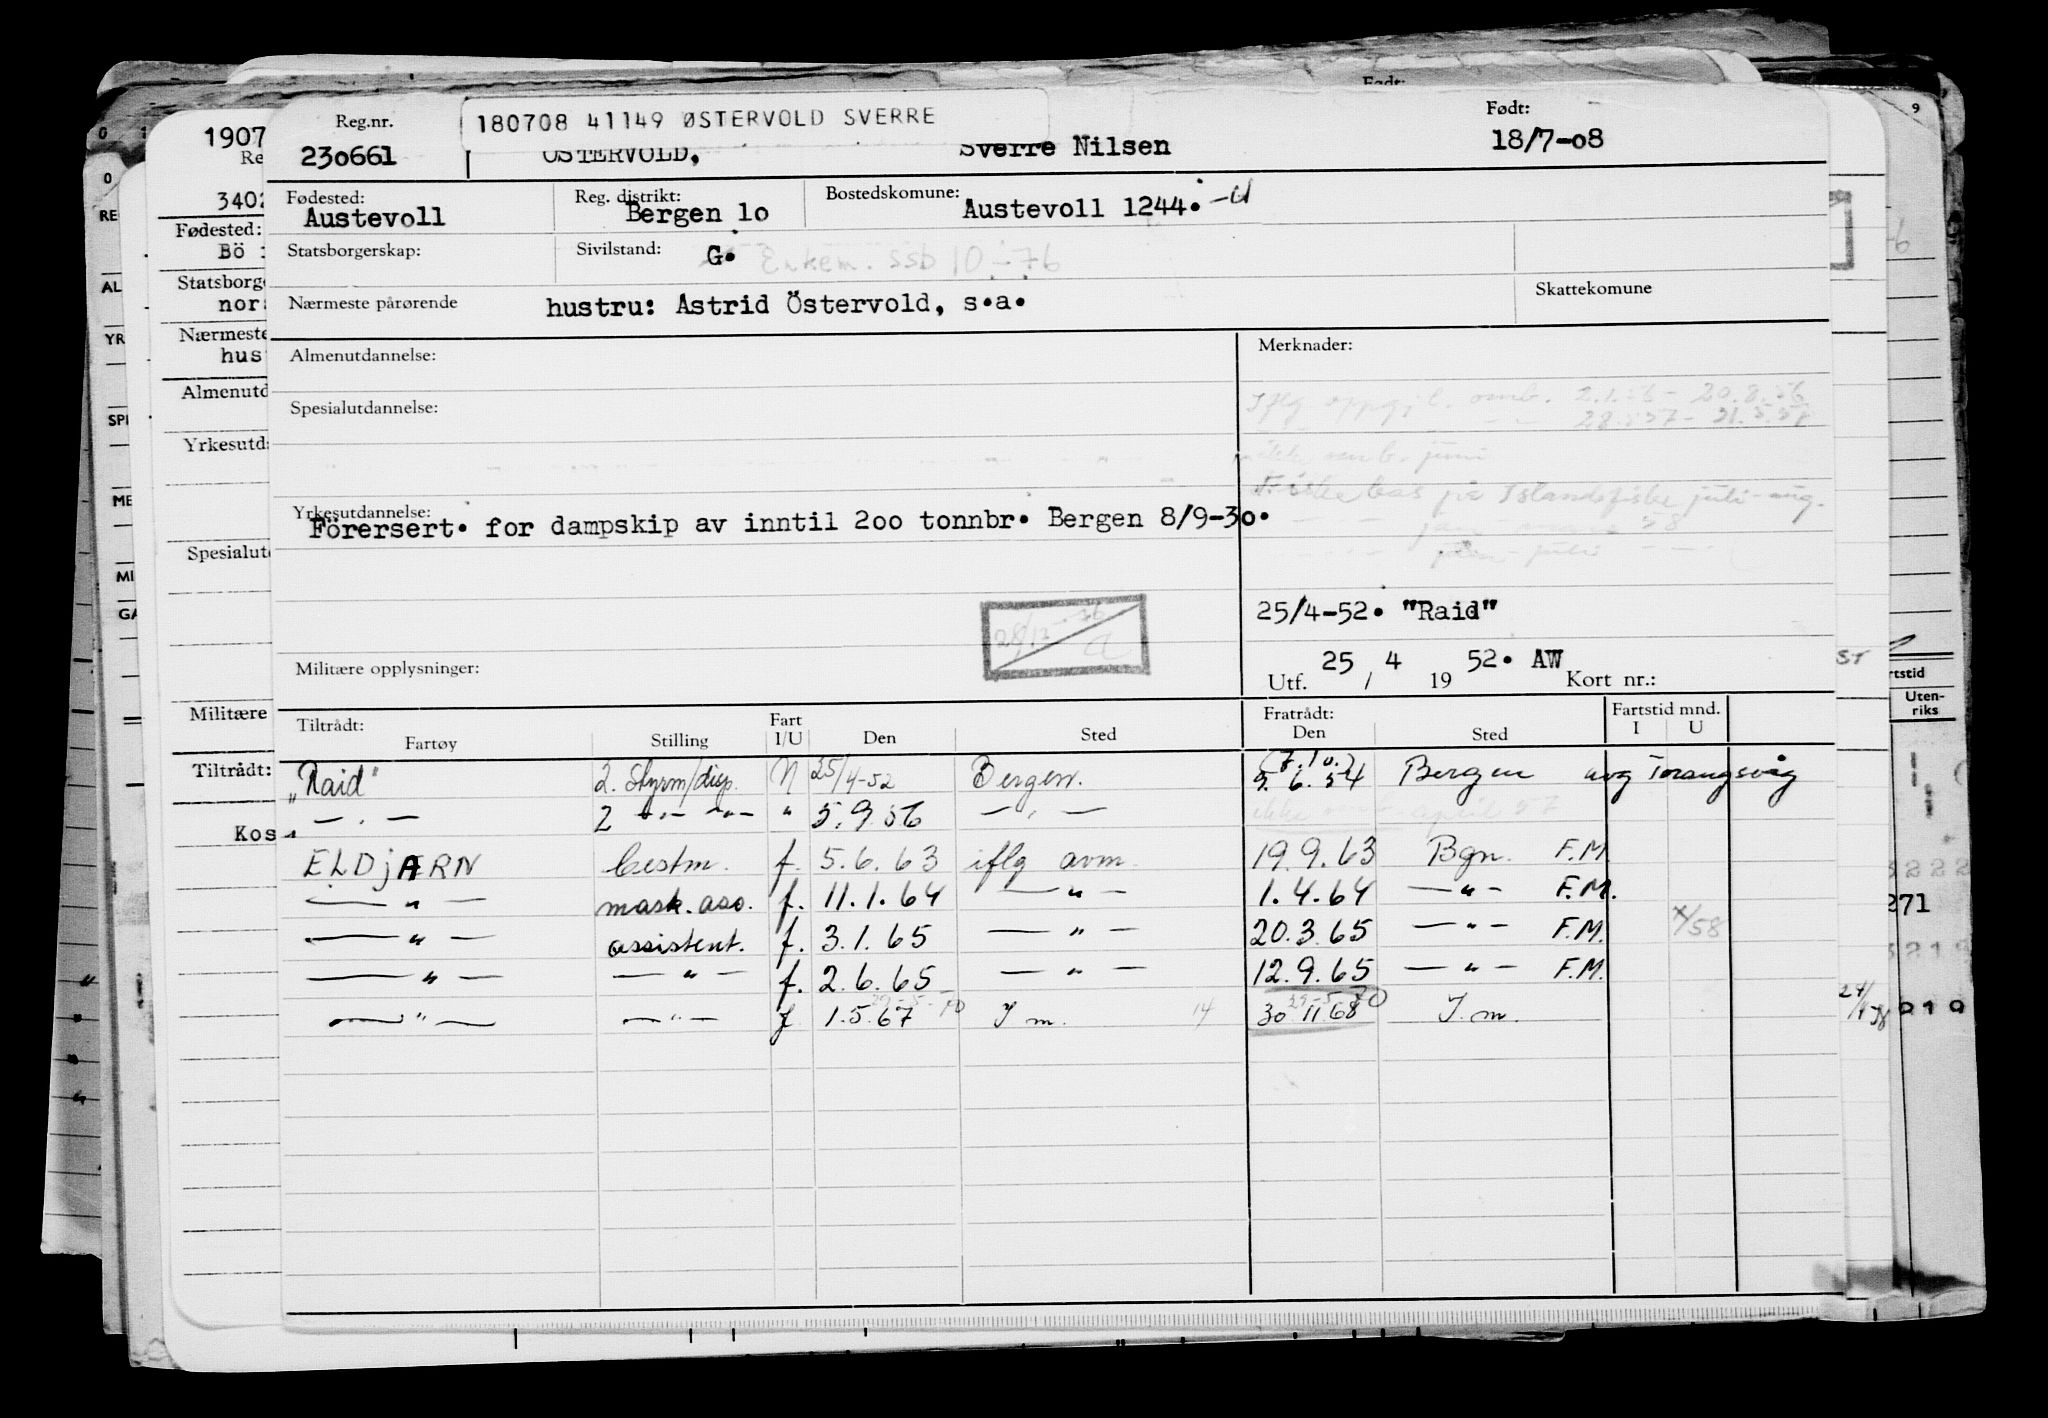 Født:
Reg.nr.
180708 41149 ØSTERVOLD SVERRE
Født:
230661
ÖSTERVOLD,
Sverre Nilsen
18/7-08
Fødested:
Austevoll
Reg. distrikt:
Bergen 1o
Bostedskomune:
Austevoll 1244.
Statsborgerskap:
Sivilstand:
G. Enkem. SSB 10-76
Nærmeste pårørende
hustru: Astrid Östervold, s.a.
Skattekomune
Almenutdannelse:
Merknader:
Iflg oppgj. l. omb. 2.1.56 - 20.8.56
Spesialutdannelse:
omb. juni
på Islandsfiske juli-aug.
Yrkesutdannelse:
Förersert. for dampskip av inntil 2oo tonnbr. Bergen 8/9-3o.
25/4-52. "Raid"
Militære opplysninger:
Utf. 25 / 4 19 52. AW Kort nr.:
Tiltrådt:
Fartøy
Stilling
Fart
I/U
Den
Sted
Fratrådt:
Den
Sted
Fartstid mnd.
I U
"Raid" 2. Styrm/disp. N 25/4-52 Bergen. (7.10.) 5.6.54 Bergen avg Torangsvåg
— " — 2 — " — " 5.9.56 — " —
ELDJARN bestm. f. 5.6.63 iflg avm. 19.9.63 Bgn. F.M.
— " — mask.ass. f. 11.1.64 — " — 1.4.64 — " — F.M.
— " — assistent. f. 3.1.65 — " — 20.3.65 — " — F.M. x/58
— " — — " — f. 2.6.65 — " — 12.9.65 — " — F.M.
— " — — " — f 1.5.67 29-5-70 I m. 14 30 11.68 29-5-70 I. m.
1907
Re
3402
Fødested:
Bö
Statsborge
nors
Nærmeste
hus
Almenutd
Yrkesutd
Spesialutd
Militære
Tiltrådt:
Kos
RE
AL
YR
SPI
ME
MI
GA
rtstid
Uten-
riks
271